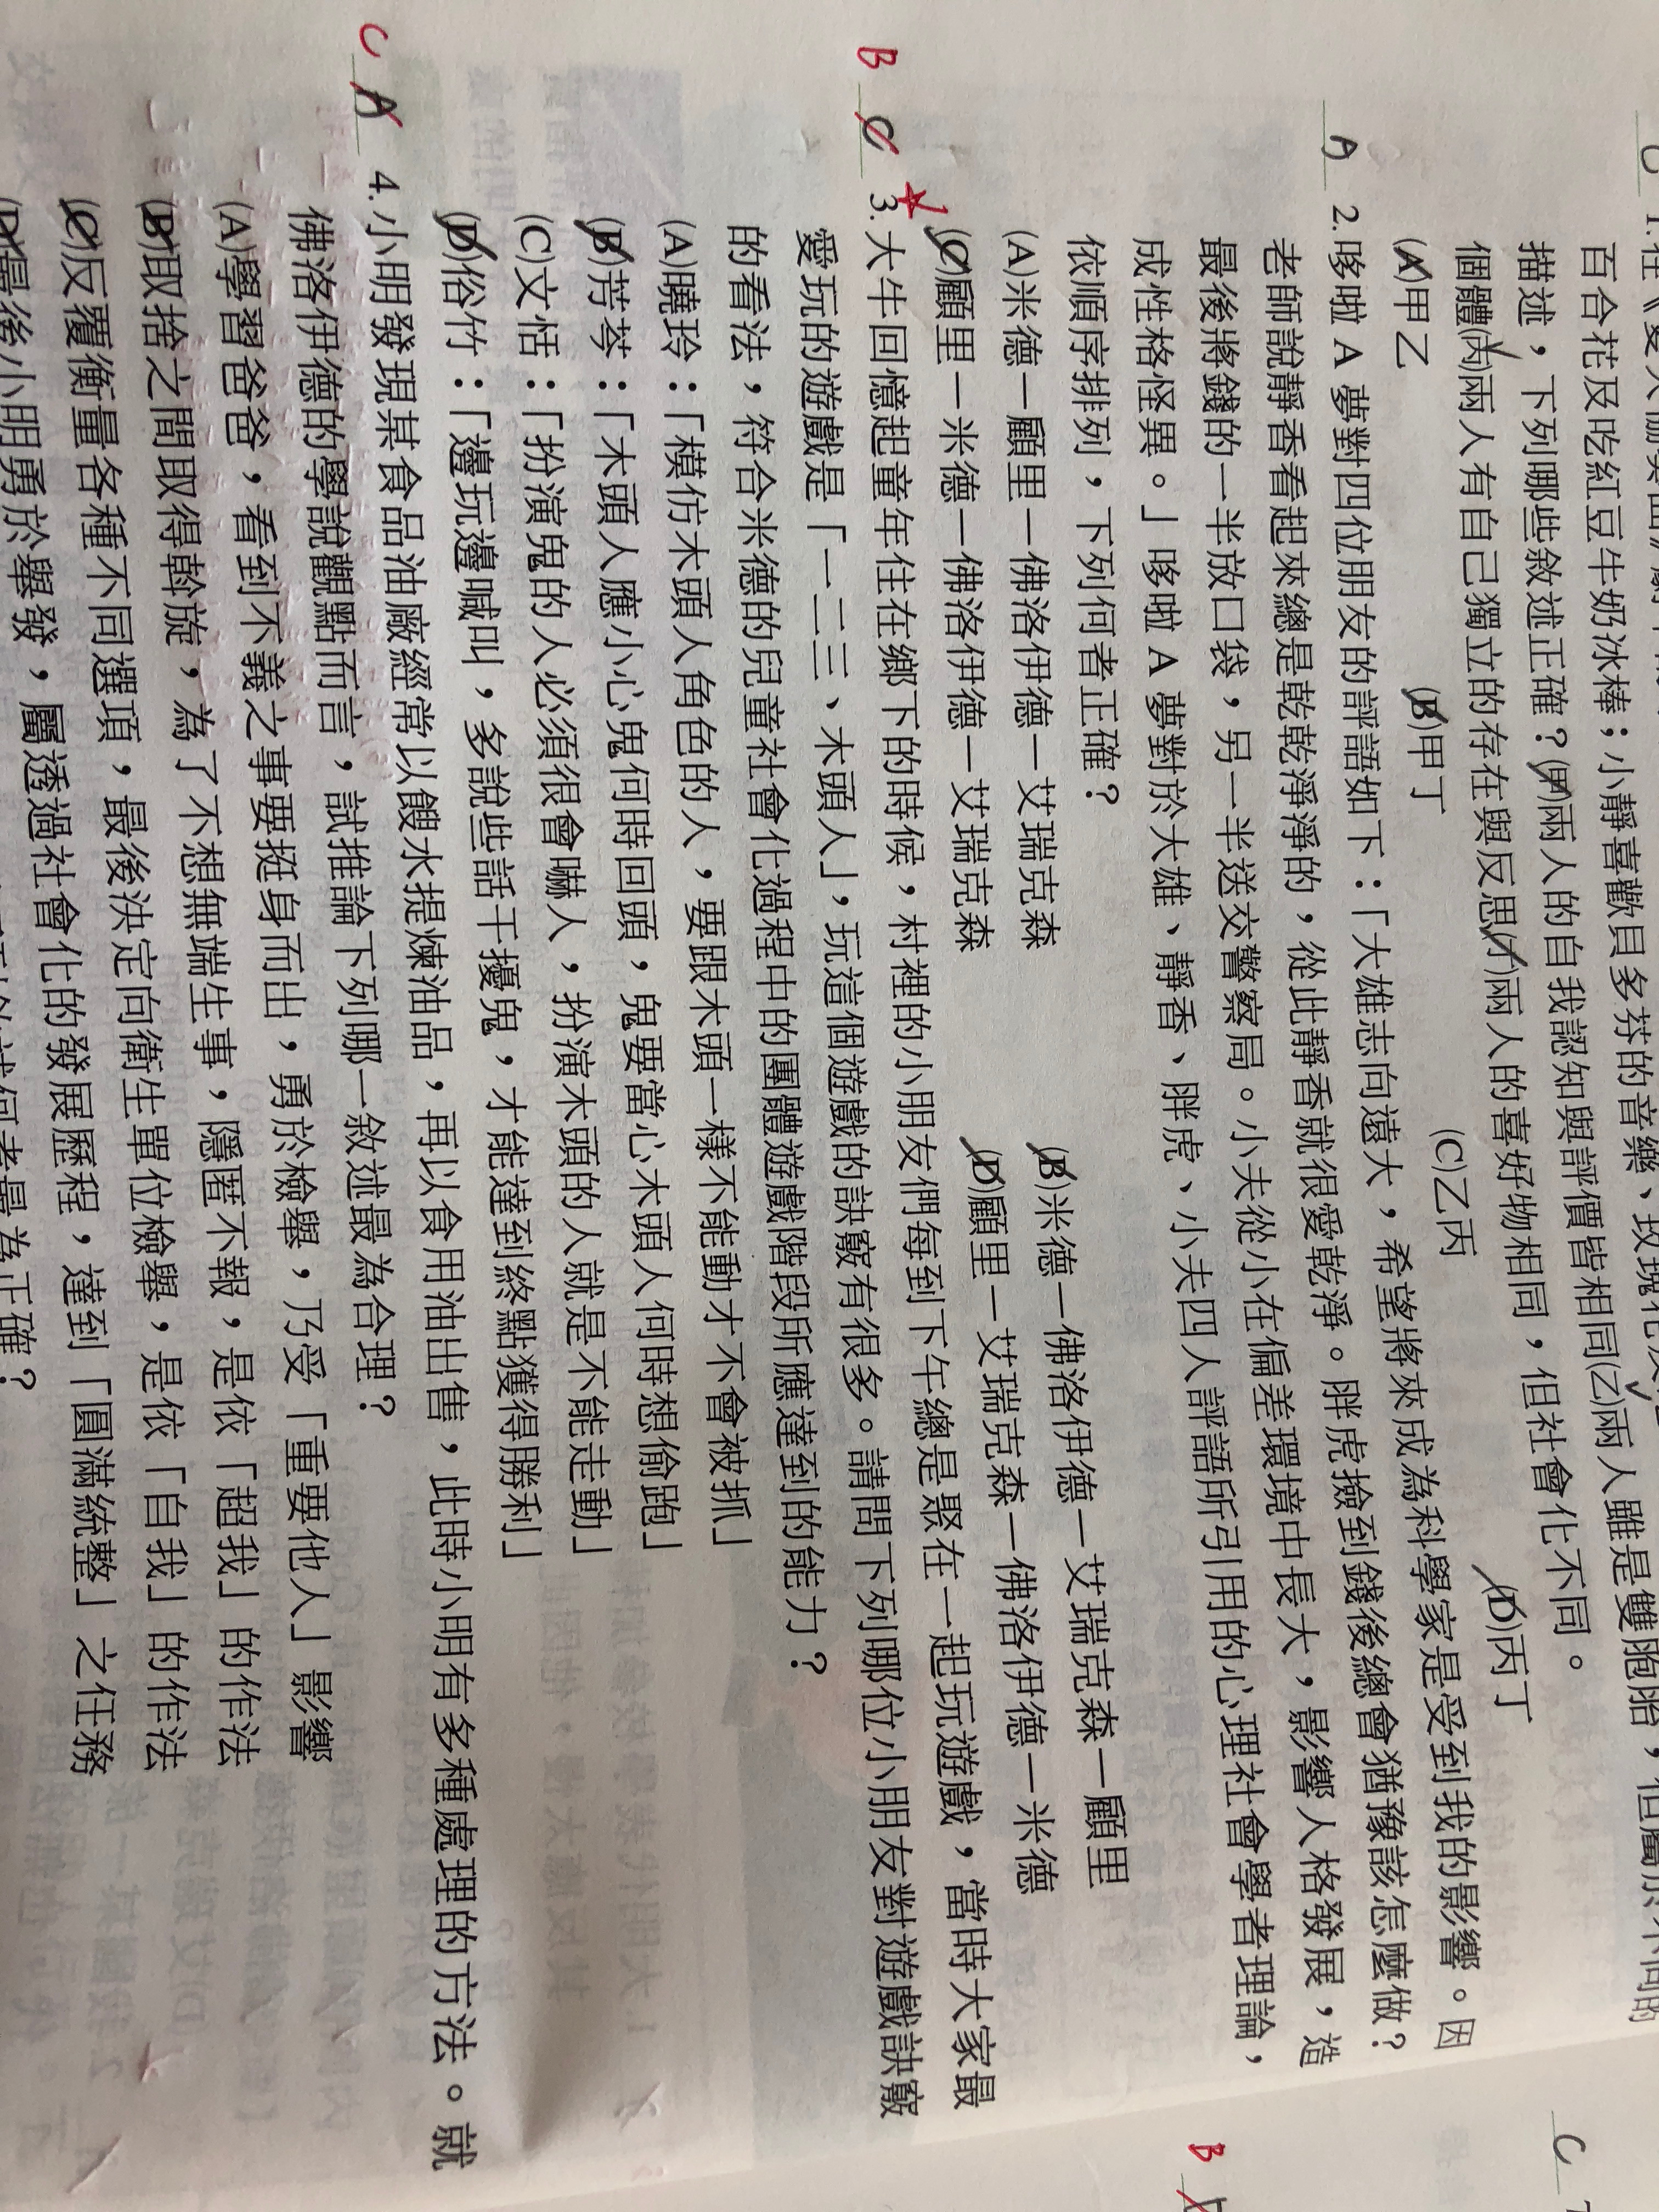 百合花及吃紅豆牛奶冰棒；小靜喜歡貝多芬的音樂、玫瑰花及
描述，下列哪些敘述正確？(甲)兩人的自我認知與評價皆相同(乙)兩人雖是雙胞胎，但屬於不同的
個體(丙)兩人有自己獨立的存在與反思(丁)兩人的喜好物相同，但社會化不同。
(A)甲乙 (B)甲丁 (C)乙丙 (D)丙丁
A 2.哆啦A夢對四位朋友的評語如下：「大雄志向遠大，希望將來成為科學家是受到我的影響。因
老師說靜香看起來總是乾乾淨淨的，從此靜香就很愛乾淨。胖虎撿到錢後總會猶豫該怎麼做？
最後將錢的一半放口袋，另一半送交警察局。小夫從小在偏差環境中長大，影響人格發展，造
成性格怪異。」哆啦A夢對於大雄、靜香、胖虎、小夫四人評語所引用的心理社會學者理論，
依順序排列，下列何者正確？
(A)米德—顧里—佛洛伊德—艾瑞克森 (B)米德—佛洛伊德—艾瑞克森—顧里
(C)顧里—米德—佛洛伊德—艾瑞克森 (D)顧里—艾瑞克森—佛洛伊德—米德
B C 3.大牛回憶起童年住在鄉下的時候，村裡的小朋友們每到下午總是聚在一起玩遊戲，當時大家最
愛玩的遊戲是「一二三、木頭人」，玩這個遊戲的訣竅有很多。請問下列哪位小朋友對遊戲訣竅
的看法，符合米德的兒童社會化過程中的團體遊戲階段所應達到的能力？
(A)曉玲：「模仿木頭人角色的人，要跟木頭一樣不能動才不會被抓」
(B)芳苓：「木頭人應小心鬼何時回頭，鬼要當心木頭人何時想偷跑」
(C)文恬：「扮演鬼的人必須很會嚇人，扮演木頭的人就是不能走動」
(D)俗竹：「邊玩邊喊叫，多說些話干擾鬼，才能達到終點獲得勝利」
C A 4.小明發現某食品油廠經常以餿水提煉油品，再以食用油出售，此時小明有多種處理的方法。就
佛洛伊德的學說觀點而言，試推論下列哪一敘述最為合理？
(A)學習爸爸，看到不義之事要挺身而出，勇於檢舉，乃受「重要他人」影響
(B)取捨之間取得斡旋，為了不想無端生事，隱匿不報，是依「超我」的作法
(C)反覆衡量各種不同選項，最後決定向衛生單位檢舉，是依「自我」的作法
(D)最後小明勇於舉發，屬透過社會化的發展歷程，達到「圓滿統整」之任務
何者最為正確？
C
B